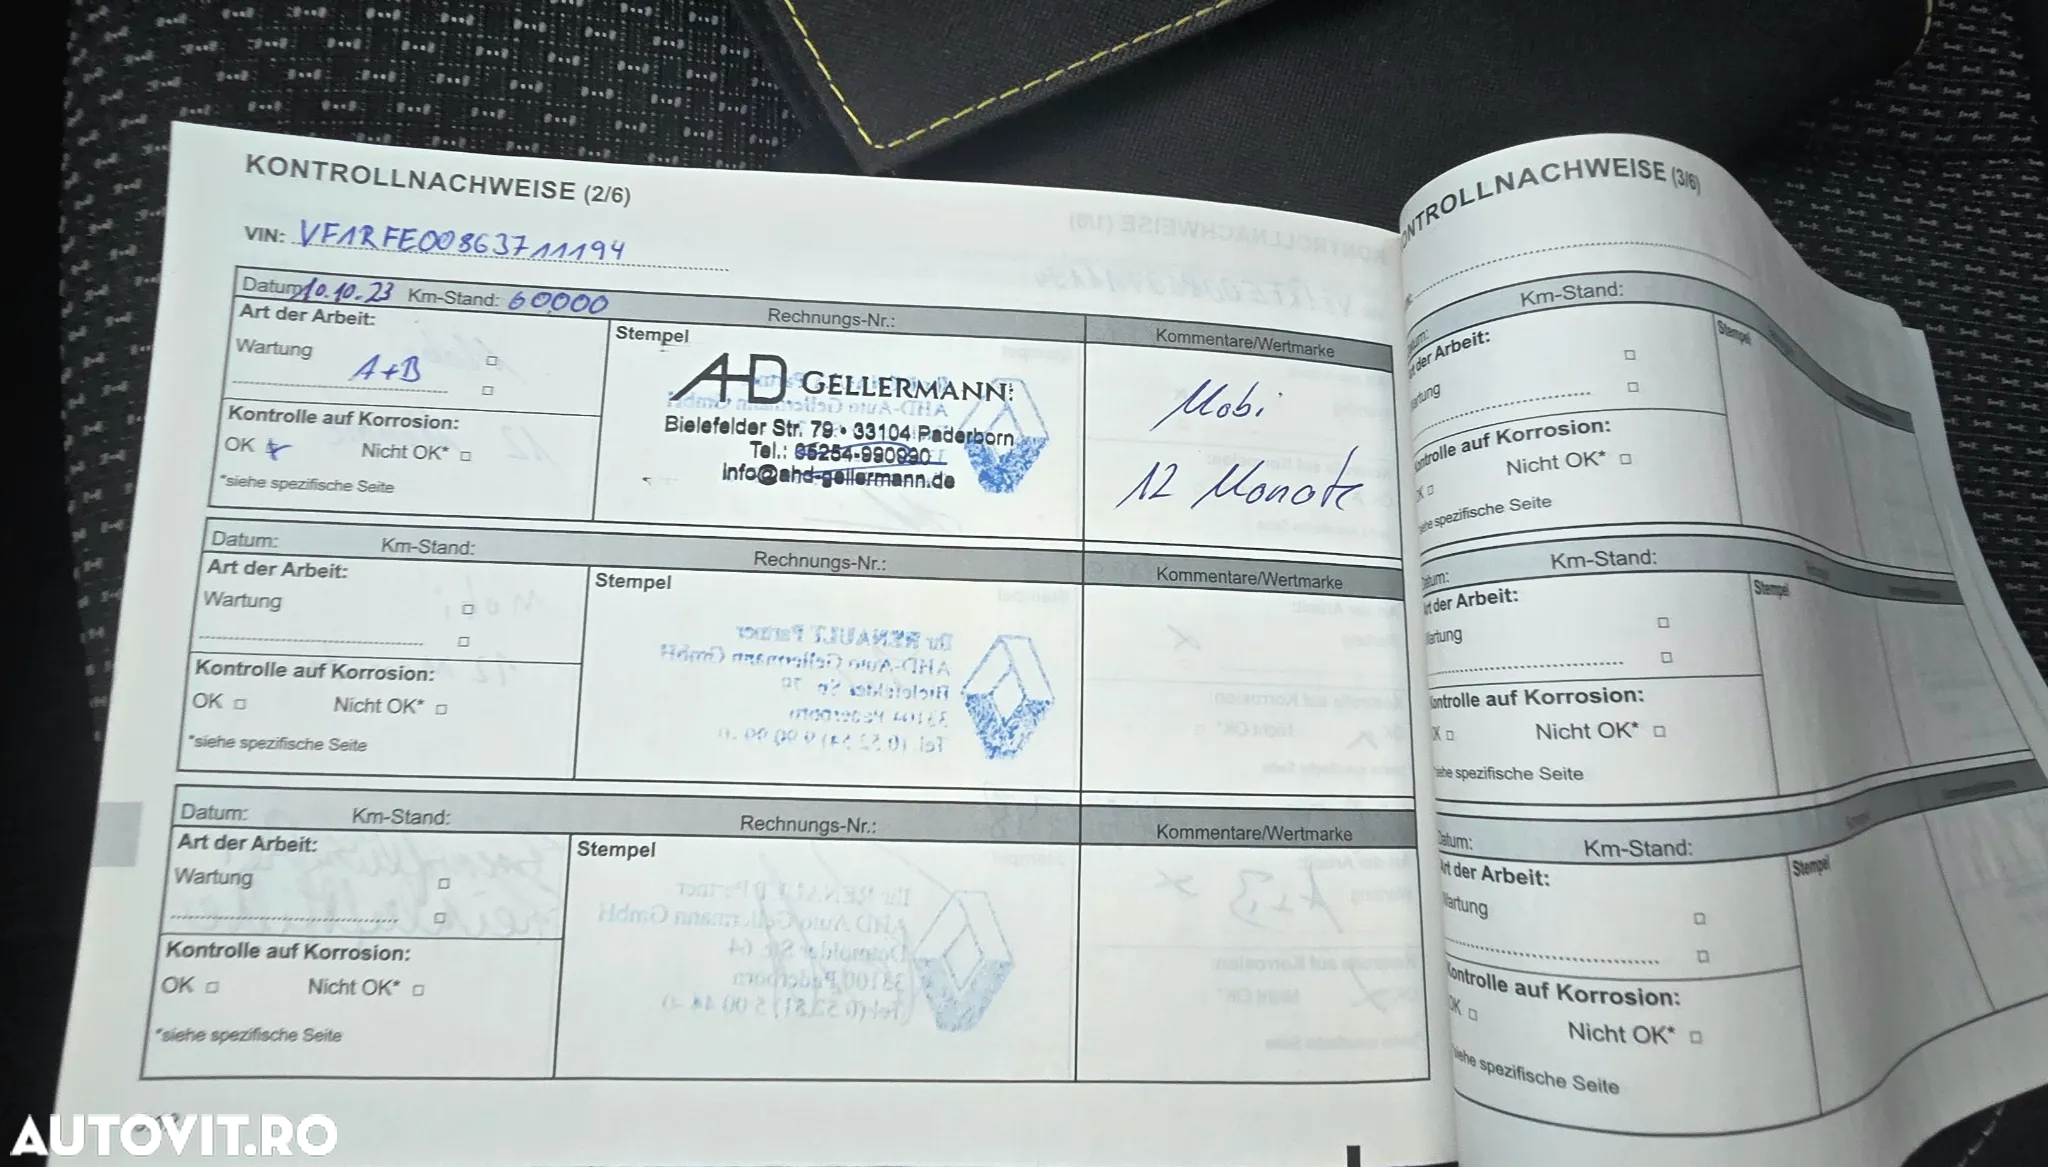 KONTROLLNACHWEISE (2/6)
VIN: VF1RFE00863711194
Datum: 10.10.23 Km-Stand: 60000 Rechnungs-Nr.:
Art der Arbeit:
Wartung
A+B
Kontrolle auf Korrosion:
OK Nicht OK*
*siehe spezifische Seite
Stempel
AHD GELLERMANN
Bielefelder Str. 79 • 33104 Paderborn
Tel.: 05254-990990
info@ahd-gellermann.de
Kommentare/Wertmarke
Mobi
12 Monate
Datum: Km-Stand: Rechnungs-Nr.:
Art der Arbeit:
Wartung
Kontrolle auf Korrosion:
OK Nicht OK*
*siehe spezifische Seite
Stempel
Kommentare/Wertmarke
Datum: Km-Stand: Rechnungs-Nr.:
Art der Arbeit:
Wartung
Kontrolle auf Korrosion:
OK Nicht OK*
*siehe spezifische Seite
Stempel
Kommentare/Wertmarke
KONTROLLNACHWEISE (3/6)
Datum: Km-Stand:
Art der Arbeit:
Wartung
Kontrolle auf Korrosion:
OK Nicht OK*
*siehe spezifische Seite
Stempel
Datum: Km-Stand:
Art der Arbeit:
Wartung
Kontrolle auf Korrosion:
OK Nicht OK*
*siehe spezifische Seite
Stempel
Datum: Km-Stand:
Art der Arbeit:
Wartung
Kontrolle auf Korrosion:
OK Nicht OK*
*siehe spezifische Seite
Stempel
AUTOVIT.RO